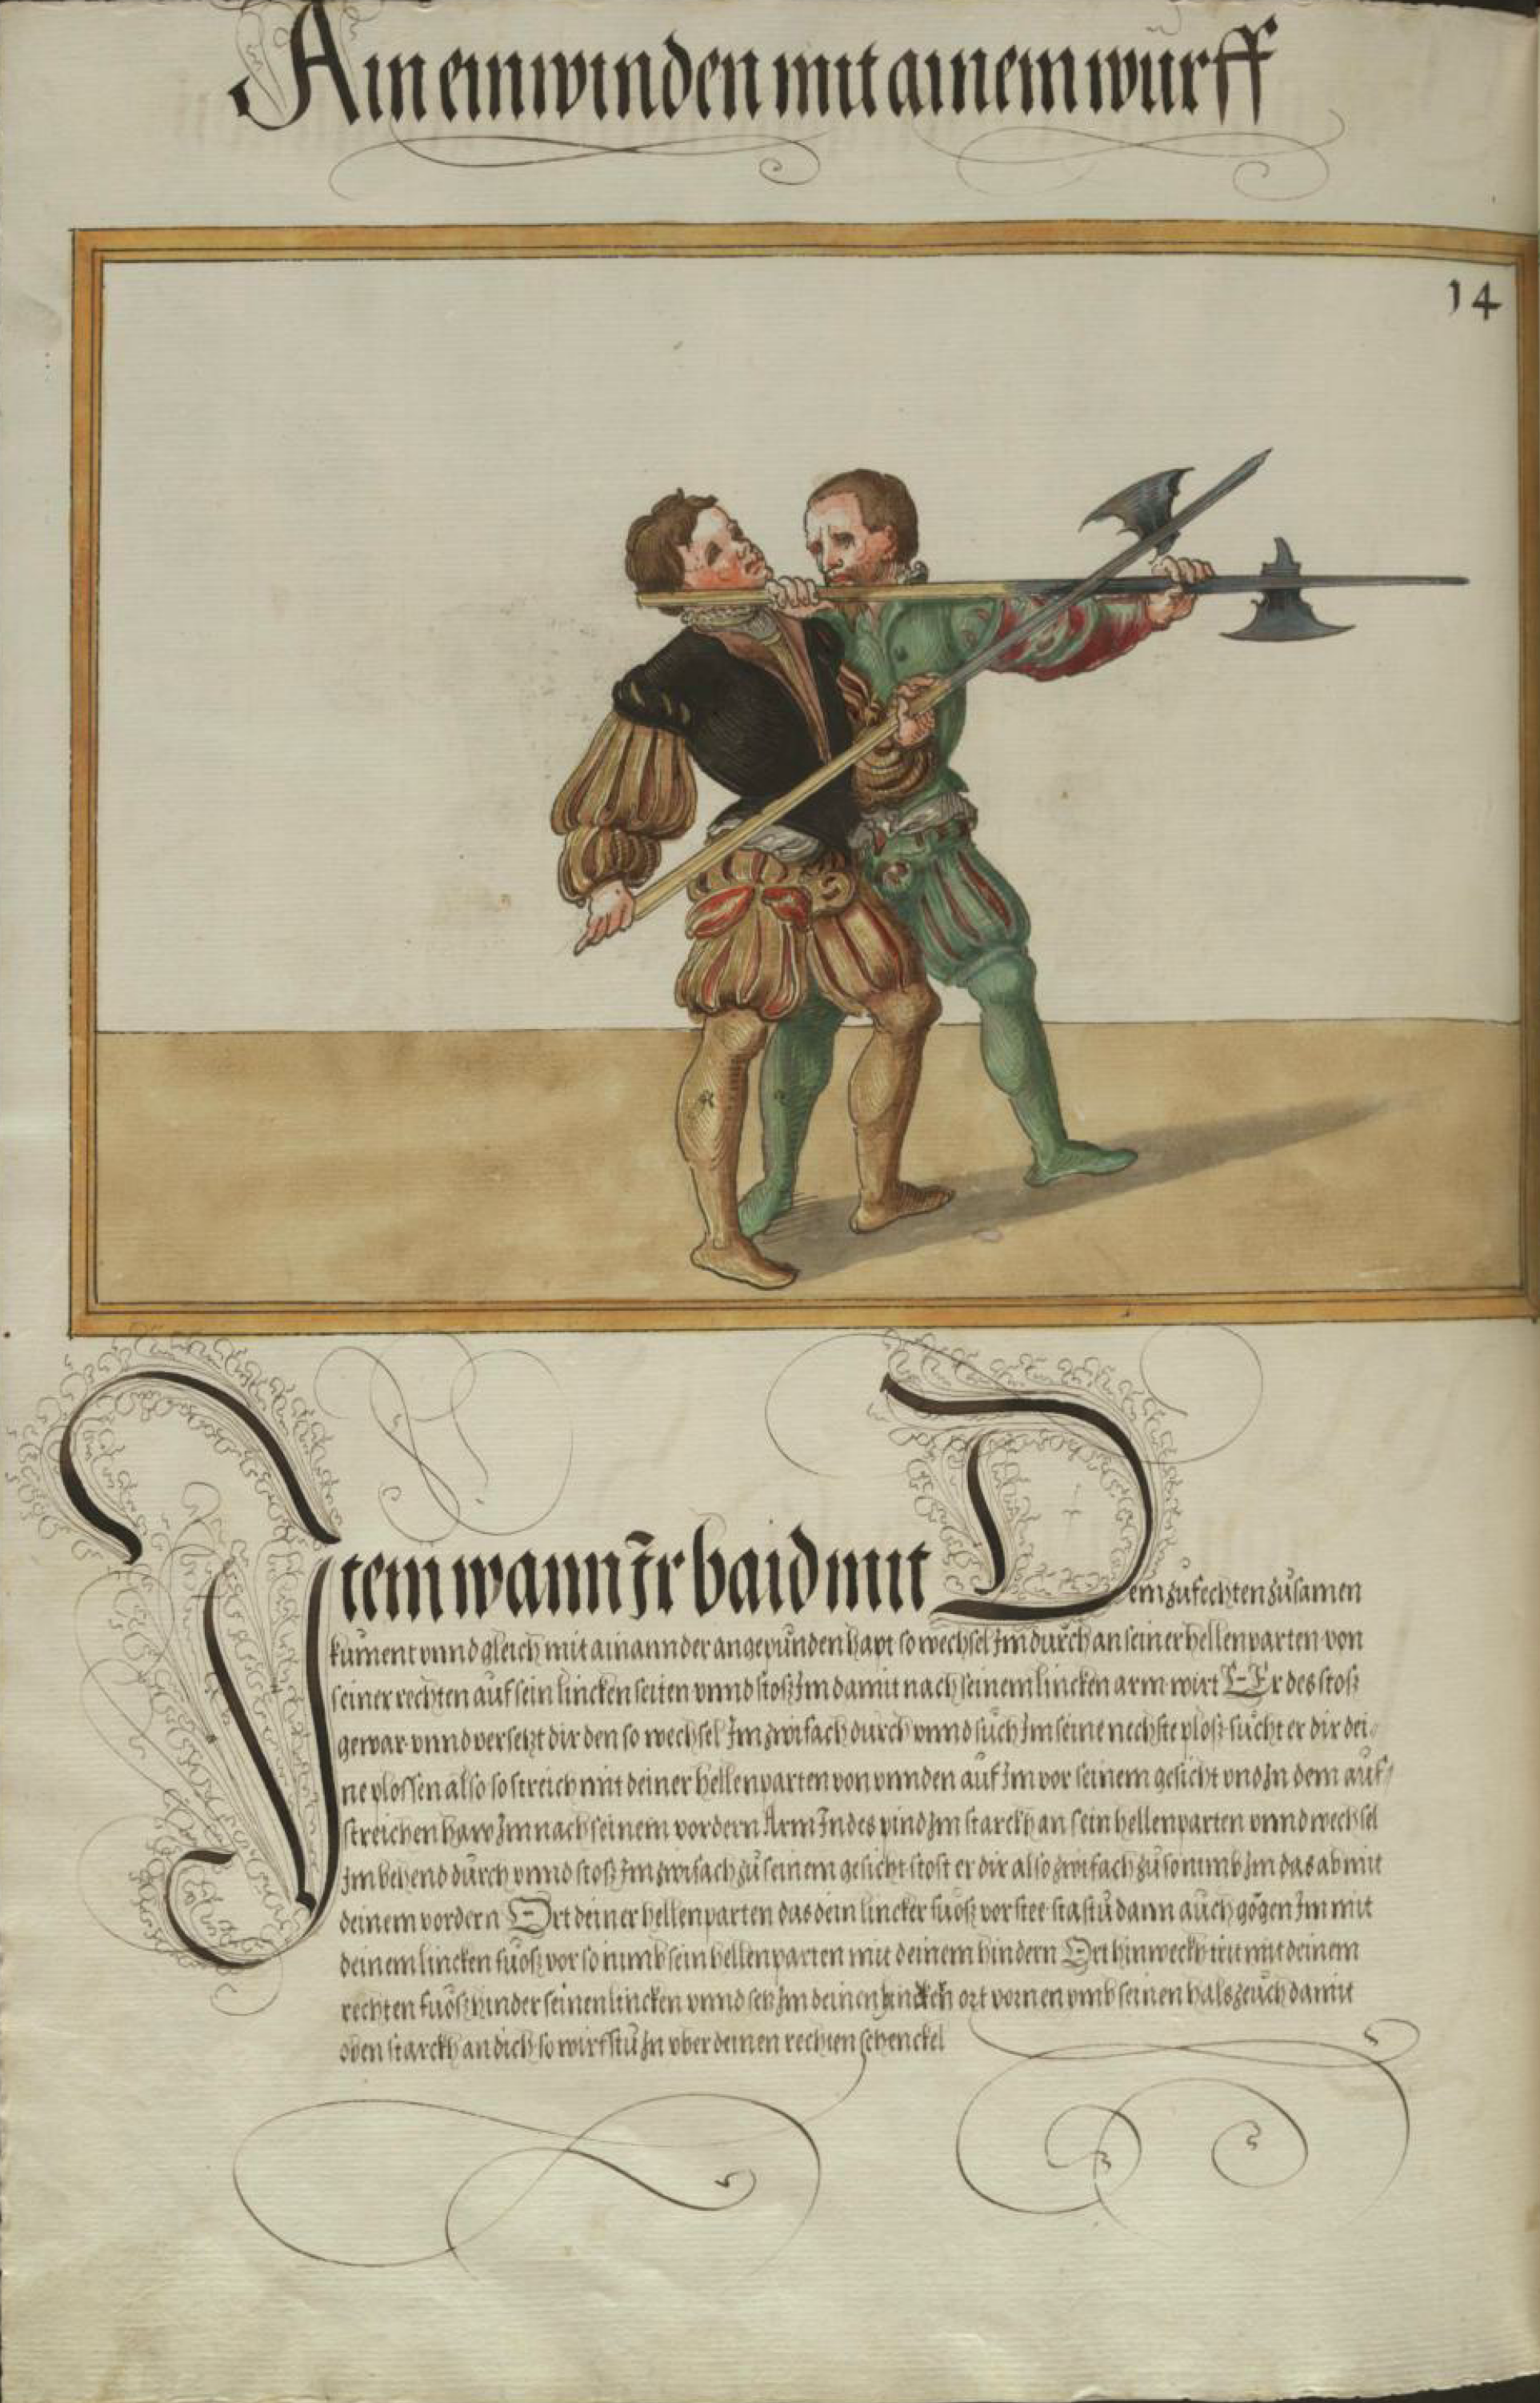 Ain einwinden mit ainem wurff
14
Item wann Ir baid mit Dem zufechten zusamen
kument vnnd gleich mit ainannder angepunden hapt so wechsel Im durch an seiner hellenparten von
seiner rechten auf sein lincken seiten vnnd stosz Im damit nach seinem lincken arm wirt Er des stosz
gewar vnnd versetzt dir den so wechsel Im zwifach durch vnnd such Im seine nechste plosz sucht er dir dei-
ne plossen also so streich mit deiner hellenparten von vnnden auf Im vor seinem gesicht vnd In dem auf-
streichen haw Im nach seinem vordern Arm Indes pind Im starckh an sein hellenparten vnnd wechsel
Im behend durch vnnd stosz Im zwifach zu seinem gesicht stost er dir also zwifach zu so nimb Im das ab mit
deinem vordern Ort deiner hellenparten das dein lincker fuosz vor stee stastu dann auch gögen Im mit
deinem lincken fuosz vor so nimb sein hellenparten mit deinem hindern Ort hinweckh trit mit deinem
rechten fuosz hinder seinen lincken vnnd setz Im deinen ort vornen vmb seinen hals zeuch damit
oben starckh an dich so wirfstu In vber deinen rechten schenckel